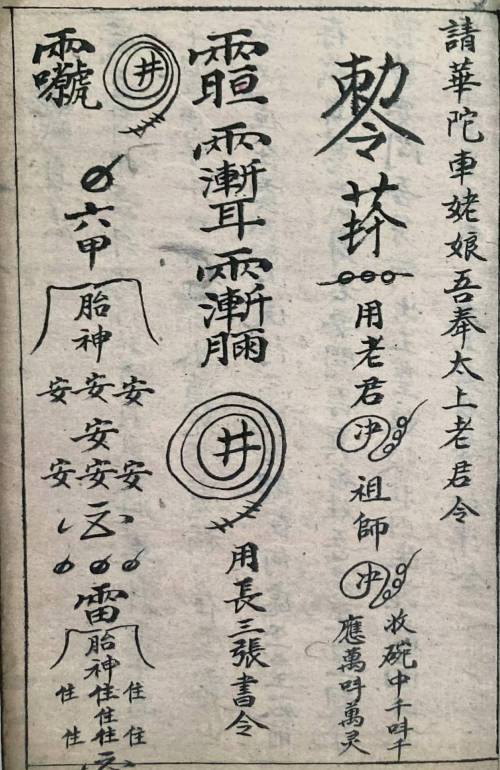 請華陀車姥娘吾奉太上老君令
勅令
用老君
冲
祖師
冲
收碗中千吽千
應萬吽萬灵
井
用長三張書令
井
六甲
胎神
安安安
安
安安安
雷
胎神
住住住
住
住住住